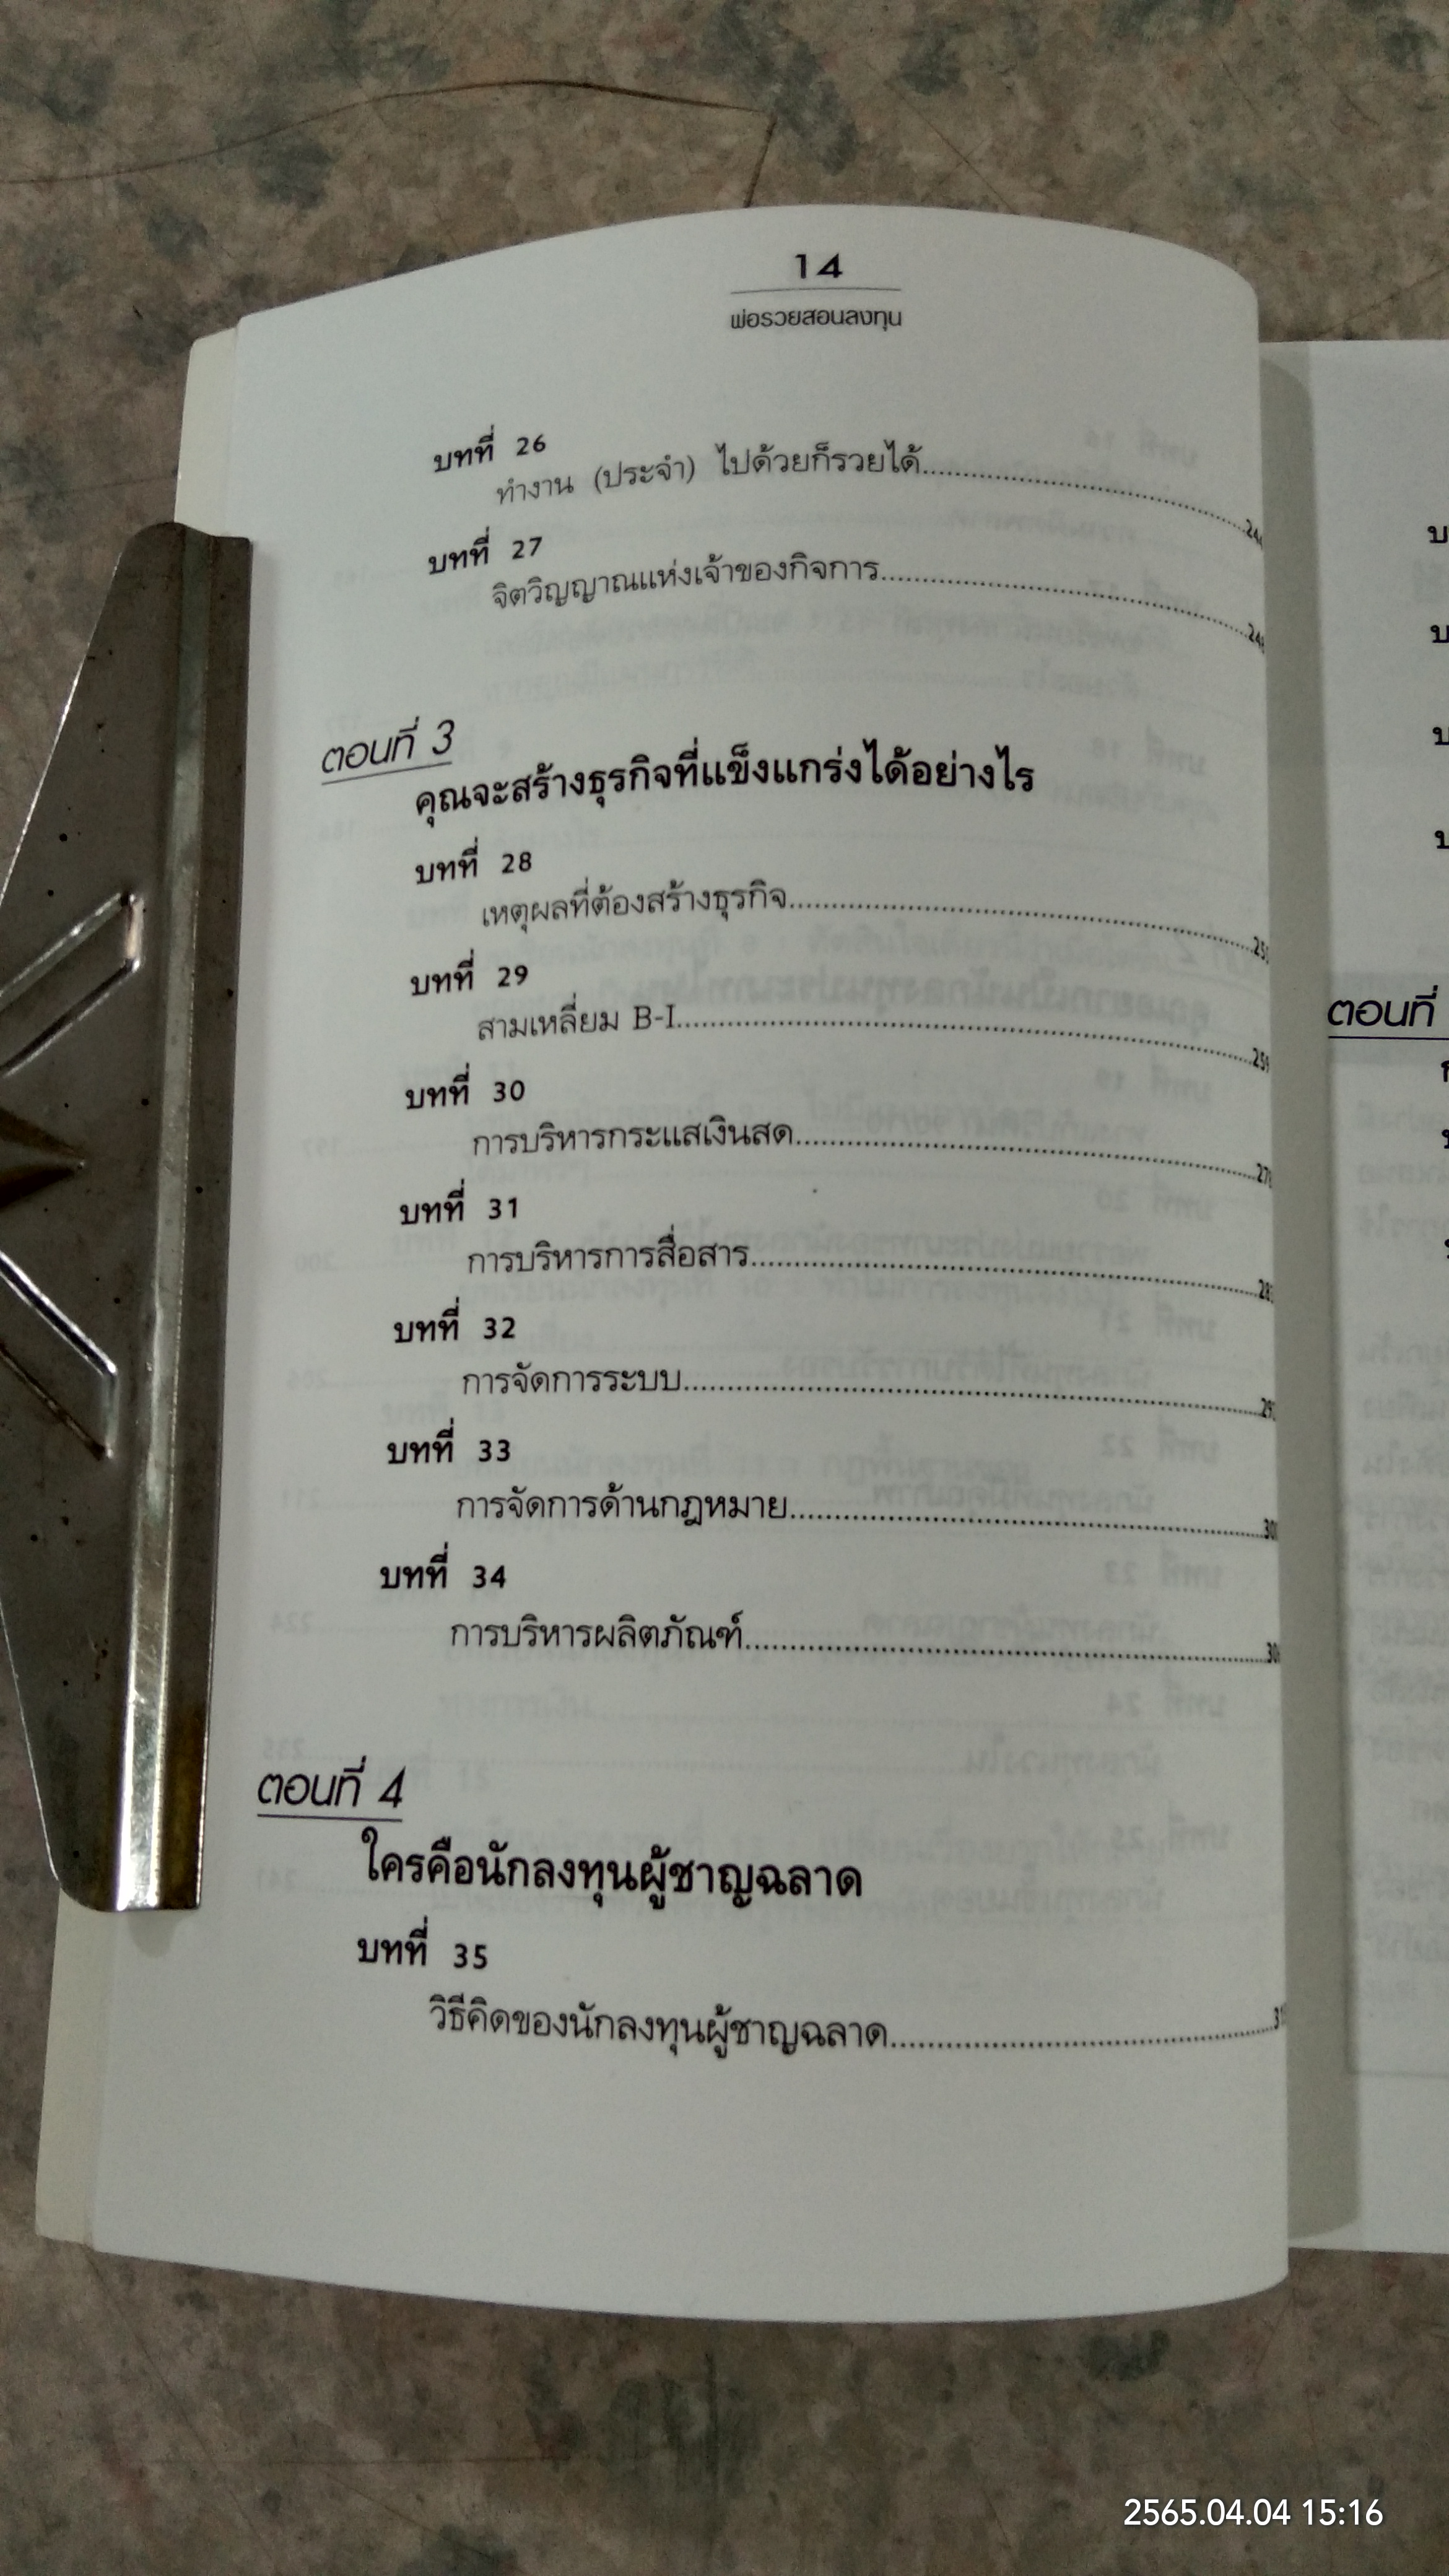 14
พ่อรวยสอนลงทุน
บทที่ 26
ทำงาน (ประจำ) ไปด้วยก็รวยได้
บทที่ 27
จิตวิญญาณแห่งเจ้าของกิจการ
ตอนที่ 3
คุณจะสร้างธุรกิจที่แข็งแกร่งได้อย่างไร
บทที่ 28
เหตุผลที่ต้องสร้างธุรกิจ
บทที่ 29
สามเหลี่ยม B-I
บทที่ 30
การบริหารกระแสเงินสด
บทที่ 31
การบริหารการสื่อสาร
บทที่ 32
การจัดการระบบ
บทที่ 33
การจัดการด้านกฎหมาย
บทที่ 34
การบริหารผลิตภัณฑ์
ตอนที่ 4
ใครคือนักลงทุนผู้ชาญฉลาด
บทที่ 35
วิธีคิดของนักลงทุนผู้ชาญฉลาด
ตอนที่
2565.04.04 15:16